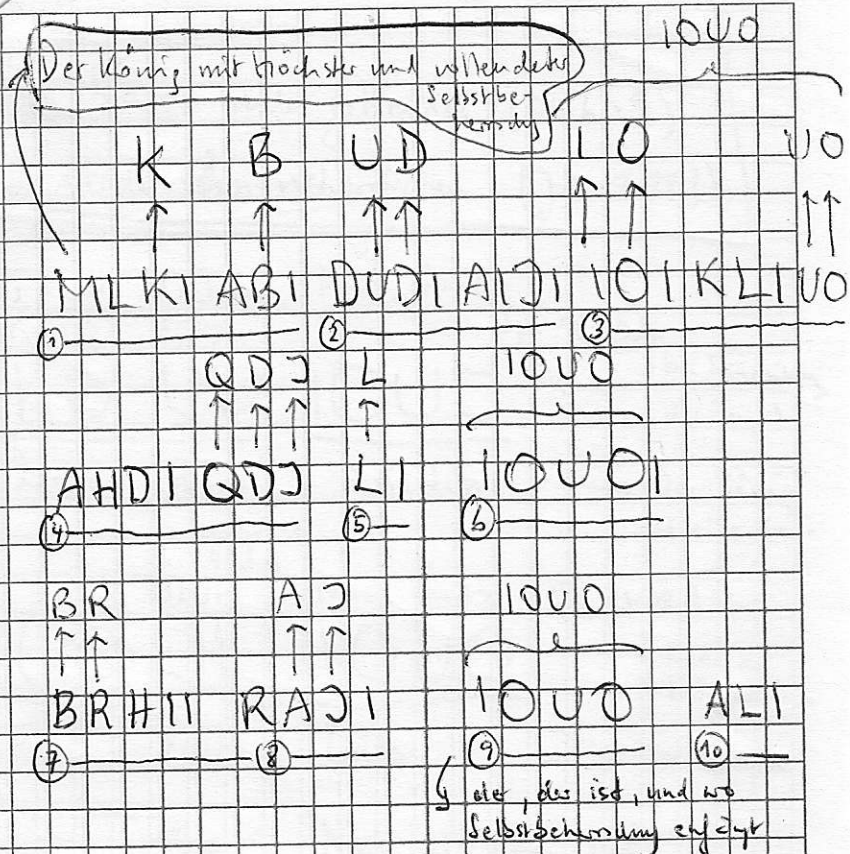 IOUO
Der König mit höchster und vollendeter
Selbstbe-
herrschg
K B U D I O U O
↑ ↑ ↑ ↑ ↑ ↑ ↑ ↑
MLKI ABI DUDI AIJI IOI KLI UO
① ② ③
Q D J L IOUO
↑ ↑ ↑ ↑
AHDI QDJ LI IOUOI
④ ⑤ ⑥
B R A J IOUO
↑ ↑ ↑ ↑
BRHII RAJI IOUO ALI
⑦ ⑧ ⑨ ⑩
der, der ist, und wo
Selbstbeherrschung